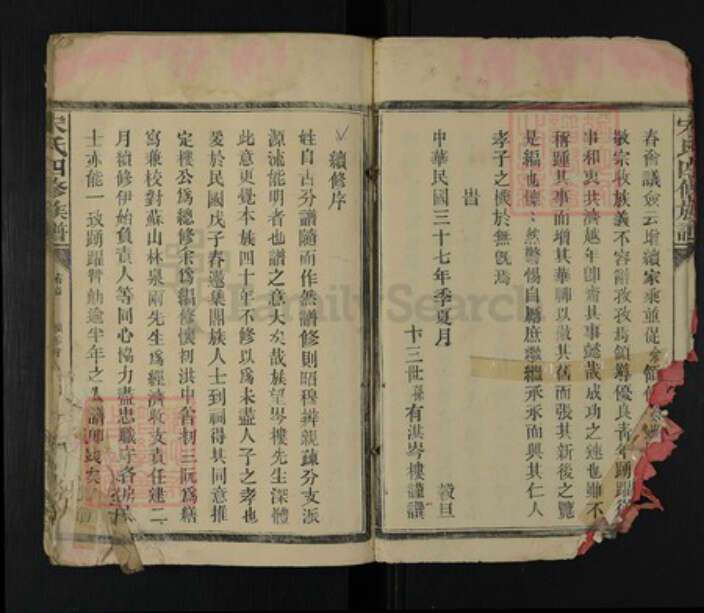 宋氏四修族譜
春僉議僉云增續家乘並從
敬宗收族義不容辭孜孜焉領導優良青年踴躍從
事和衷共濟越年即齋其事懿哉成功之速也雖不
稱踵其事而增其華聊以做其舊而張其新後之覽
是編也慄慄然警惕自勵庶繼繼承承而與其仁人
孝子之懷於無既焉
旹
中華民國三十七年季夏月 穀旦
卞三世孫有淇岑樓謹譔
續修序
姓自古分譜隨而作然譜修則昭穆辨親疎分支派
源流能明者也譜之意大矣哉族望岑樓先生深體
此意更覺本族四十年不修以為未盡人子之孝也
爰於民國戊子春邀集闔族人士到祠得其同意推
定樓公為總修余為編修懷初洪申曾初三阮為繕
寫兼校對蘇山林泉兩先生為經濟收支責任建二
月續修伊始負責人等同心協力盡忠職守各房
士亦能一致踴躍贊勷逾半年之 譜
宋氏四修族譜
FamilySearch